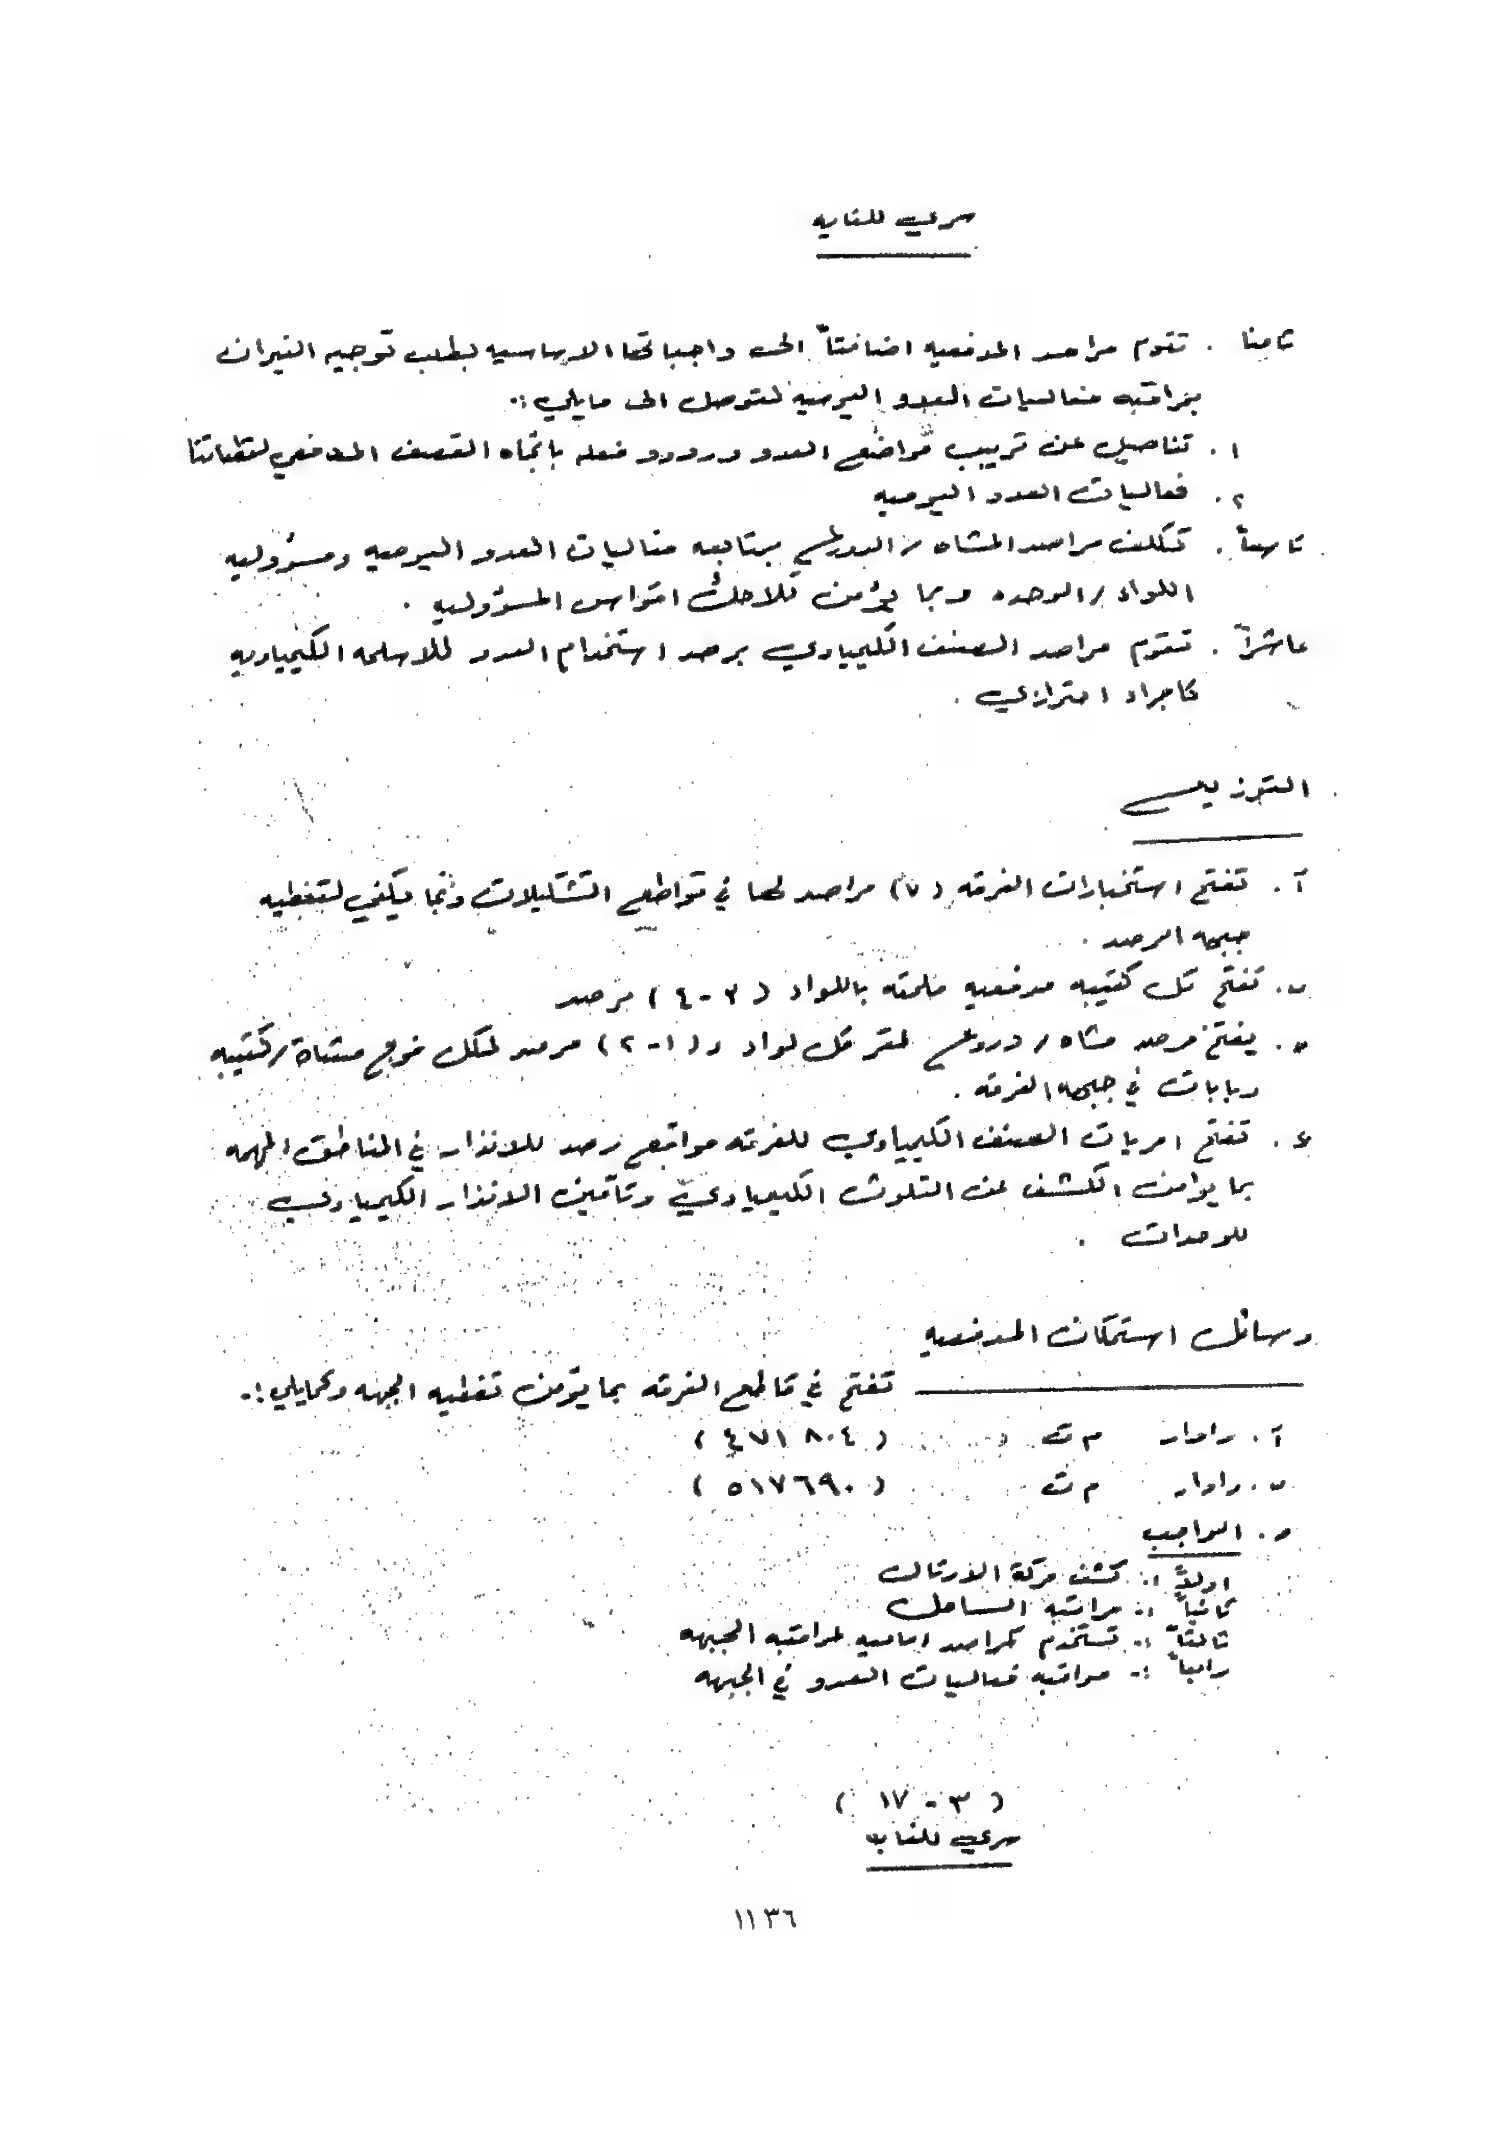 سري للغايه
ثامنا . تقوم مراصد المدفعيه اضافتاً الى واجباتها الاساسيه بطلب توجيه النيران
بمراقبه فعاليات العدو اليوميه لتوصل الى مايلي :.
١. تفاصيل عن ترتيب مواضع العدو وردود فعله باتجاه القصف المدفعي لقطعاتنا
٢. فعاليات العدو اليوميه
تاسعاً . تكلف مراصد المشاه / الدروع بمتابعه فعاليات العدو اليوميه ومسؤوليه
اللواء / الوحده وبما يؤمن تلاحك اقواس المسؤوليه .
عاشراً . تقوم مراصد الصنف الكيمياوي برصد استخدام العدو للاسلحه الكيمياويه
كاجراء احترازي .
التوزيع
آ . تفتح استخبارات الفرقه (٧) مراصد لها في قواطع التشكيلات وبما يكفي لتغطيه
جبهه الرصد .
ب. تفتح كل كتيبه مدفعيه ملحقه باللواء (٣-٤) مرصد
ج. يفتح مرصد مشاه / دروع لمقر كل لواء و(١-٢) مرصد لكل فوج مشاة/كتيبه
دبابات في جبهه الفرقه .
ء . تفتح سريات الصنف الكيمياوي للفرقه مواقع رصد للانذار في المناطق المهمه
بما يؤمن الكشف عن التلوث الكيمياوي وتأمين الانذار الكيمياوي
للوحدات .
وسائل استمكان المدفعيه
تفتح في قاطع الفرقه بما يؤمن تغطيه الجبهه وكمايلي :.
آ . رادار م ت (٤٧١٨٠٤)
ب. رادار م ت (٥١٧٦٩٠)
ج. الواجب
اولاً :- كشف حركة الارتال
ثانياً :- مراقبه الساحل
ثالثاً :- تستخدم كمراصد اماميه لمراقبه الجبهه
رابعاً :- مراقبه فعاليات العدو في الجبهه
(٣-١٧)
سري للغايه
١١٣٦